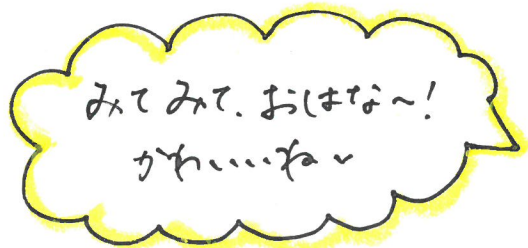 みてみて、おはな〜!
かわいいね♥